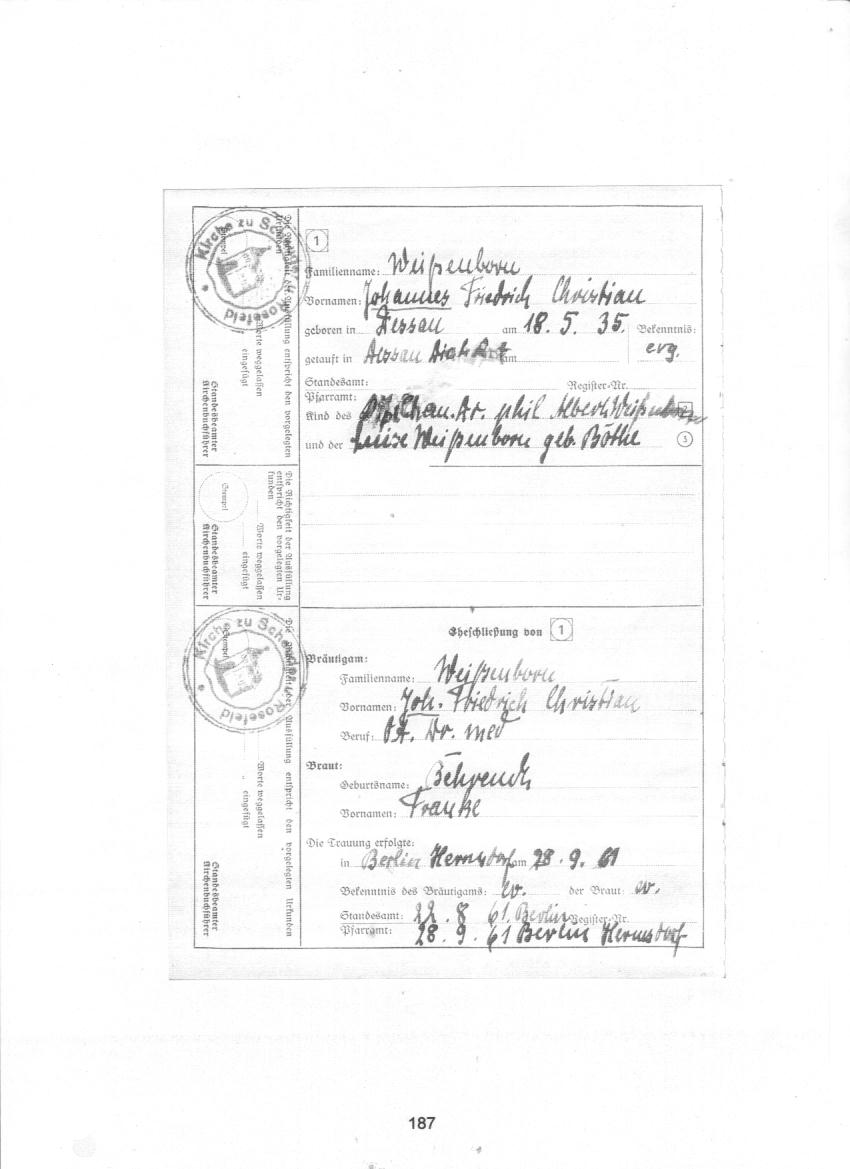 1
Familienname: Weißenborn
Vornamen: Johannes Friedrich Christian
geboren in Dessau am 18. 5. 35. Bekenntnis:
getauft in Dessau am evg.
Standesamt: Register-Nr.
Pfarramt:
Kind des Dr. phil Albert Weißenborn 2
und der Luise Weißenborn geb. Böthe 3
Eheschließung von 1
Bräutigam:
Familienname: Weißenborn
Vornamen: Joh. Friedrich Christian
Beruf: Dr. med
Braut:
Geburtsname: Behrendt
Vornamen: Frauke
Die Trauung erfolgte:
in Berlin Hermsdorf am 28. 9. 61
Bekenntnis des Bräutigams: ev. der Braut: ev.
Standesamt: 22. 8 61. Berlin Register-Nr.
Pfarramt: 28. 9. 61 Berlin Hermsdorf
Kirche zu
Rosefeld
Die Richtigkeit der Ausfüllung entspricht den vorgelegten
Urkunden
Worte weggelassen
eingefügt
Standesbeamter
Kirchenbuchführer
Die Richtigkeit der Ausfüllung
entspricht den vorgelegten Ur-
kunden
Worte weggelassen
eingefügt
Stempel
Standesbeamter
Kirchenbuchführer
Kirche zu
Rosefeld
Stempel
Die Richtigkeit der Ausfüllung entspricht den vorgelegten Urkunden
Worte weggelassen
" eingefügt
Standesbeamter
Kirchenbuchführer
187